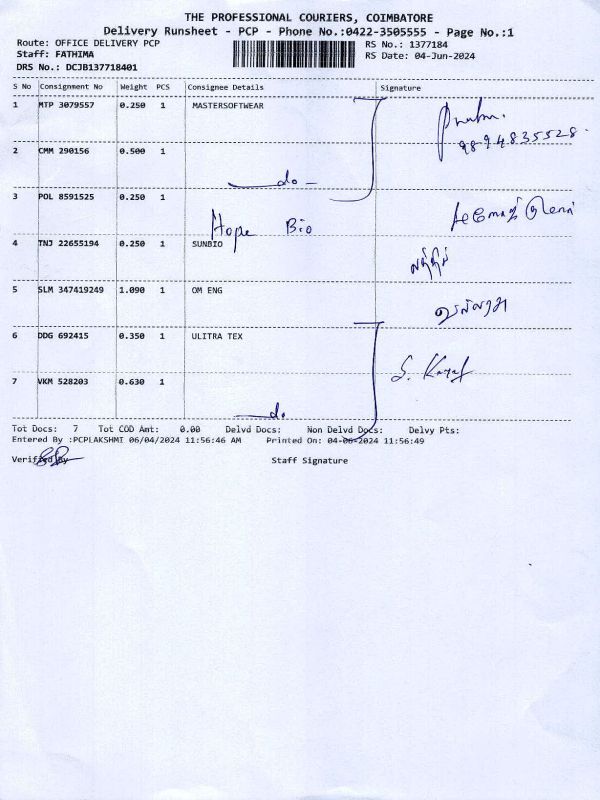 THE PROFESSIONAL COURIERS, COIMBATORE
Delivery Runsheet - PCP - Phone No.:0422-3505555 - Page No.:1
Route: OFFICE DELIVERY PCP RS No.: 1377184
Staff: FATHIMA RS Date: 04-Jun-2024
DRS No.: DCJB137718401
S No Consignment No Weight PCS Consignee Details Signature
1 MTP 3079557 0.250 1 MASTERSOFTWEAR
9894835528
2 CMM 290156 0.500 1
do
3 POL 8591525 0.250 1
Hope Bio
4 TNJ 22655194 0.250 1 SUNBIO
5 SLM 347419249 1.090 1 OM ENG
6 DDG 692415 0.350 1 ULITRA TEX
7 VKM 528203 0.630 1
do
Tot Docs: 7 Tot COD Amt: 0.00 Delvd Docs: Non Delvd Docs: Delvy Pts:
Entered By :PCPLAKSHMI 06/04/2024 11:56:46 AM Printed On: 04-06-2024 11:56:49
Verified By Staff Signature